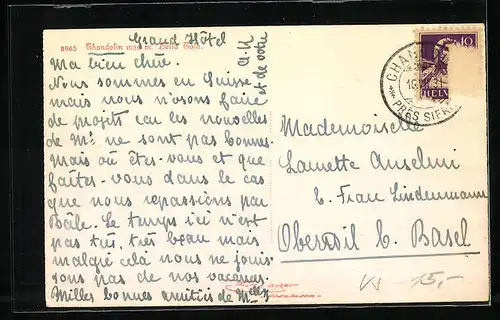 8965 Chandolin 1936 m. Hella Tola.
Grand Hôtel
Ma bien chère.
Nous sommes en Suisse
mais nous n'osons faire
de projets car les nouvelles
de Mr. ne sont pas bonnes.
Mais où êtes-vous et que
faites-vous dans le cas
que nous repassions par
Bâle. Le temps ici n'est
pas très, très beau mais
malgré celà nous ne jouis-
sons pas de nos vacances.
Milles bonnes amitiés de Melly
et de votre
10
HELVETIA
PRÈS SIERRE
Mademoiselle
Laurette Anselmi
b. Frau Lindenmann
Oberwil b. Basel
15,-